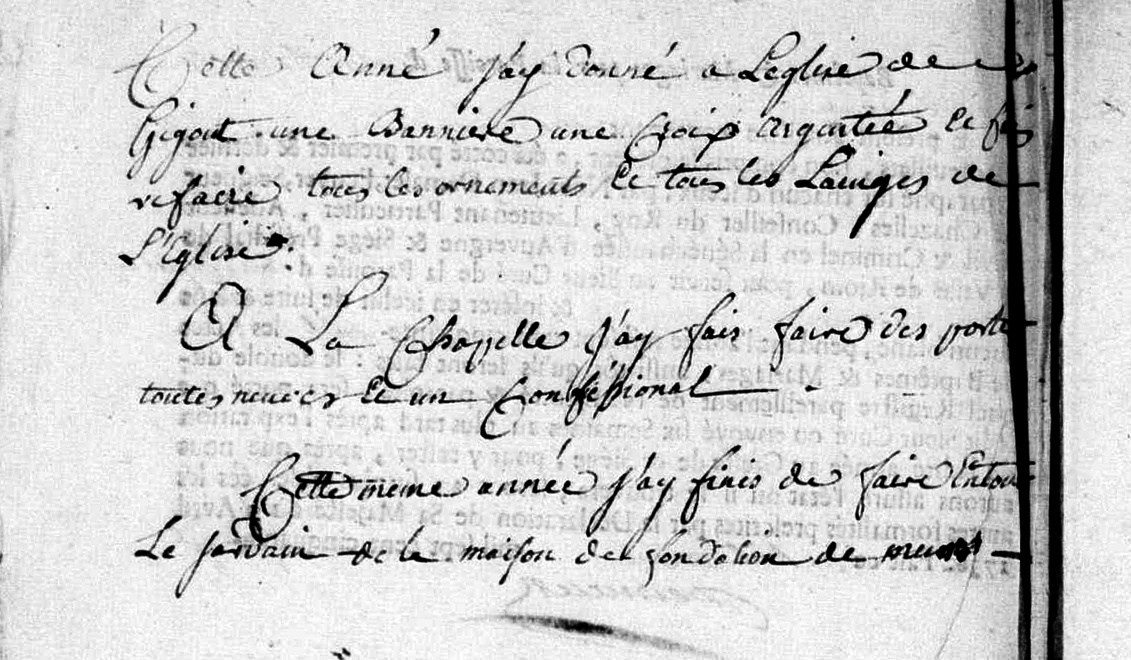 Cette Anné j'ay donné a L'eglise de
Gigout une Banniere une Croix argentée et fais
refaire tous les ornements et tous les Linges de
L'Eglise.
A La Chapelle j'ay fais faire des porte
toutes neuves et un Confessional
Cette meme année j'ay finis de faire Entou
Le jardain de la maison de fondation de